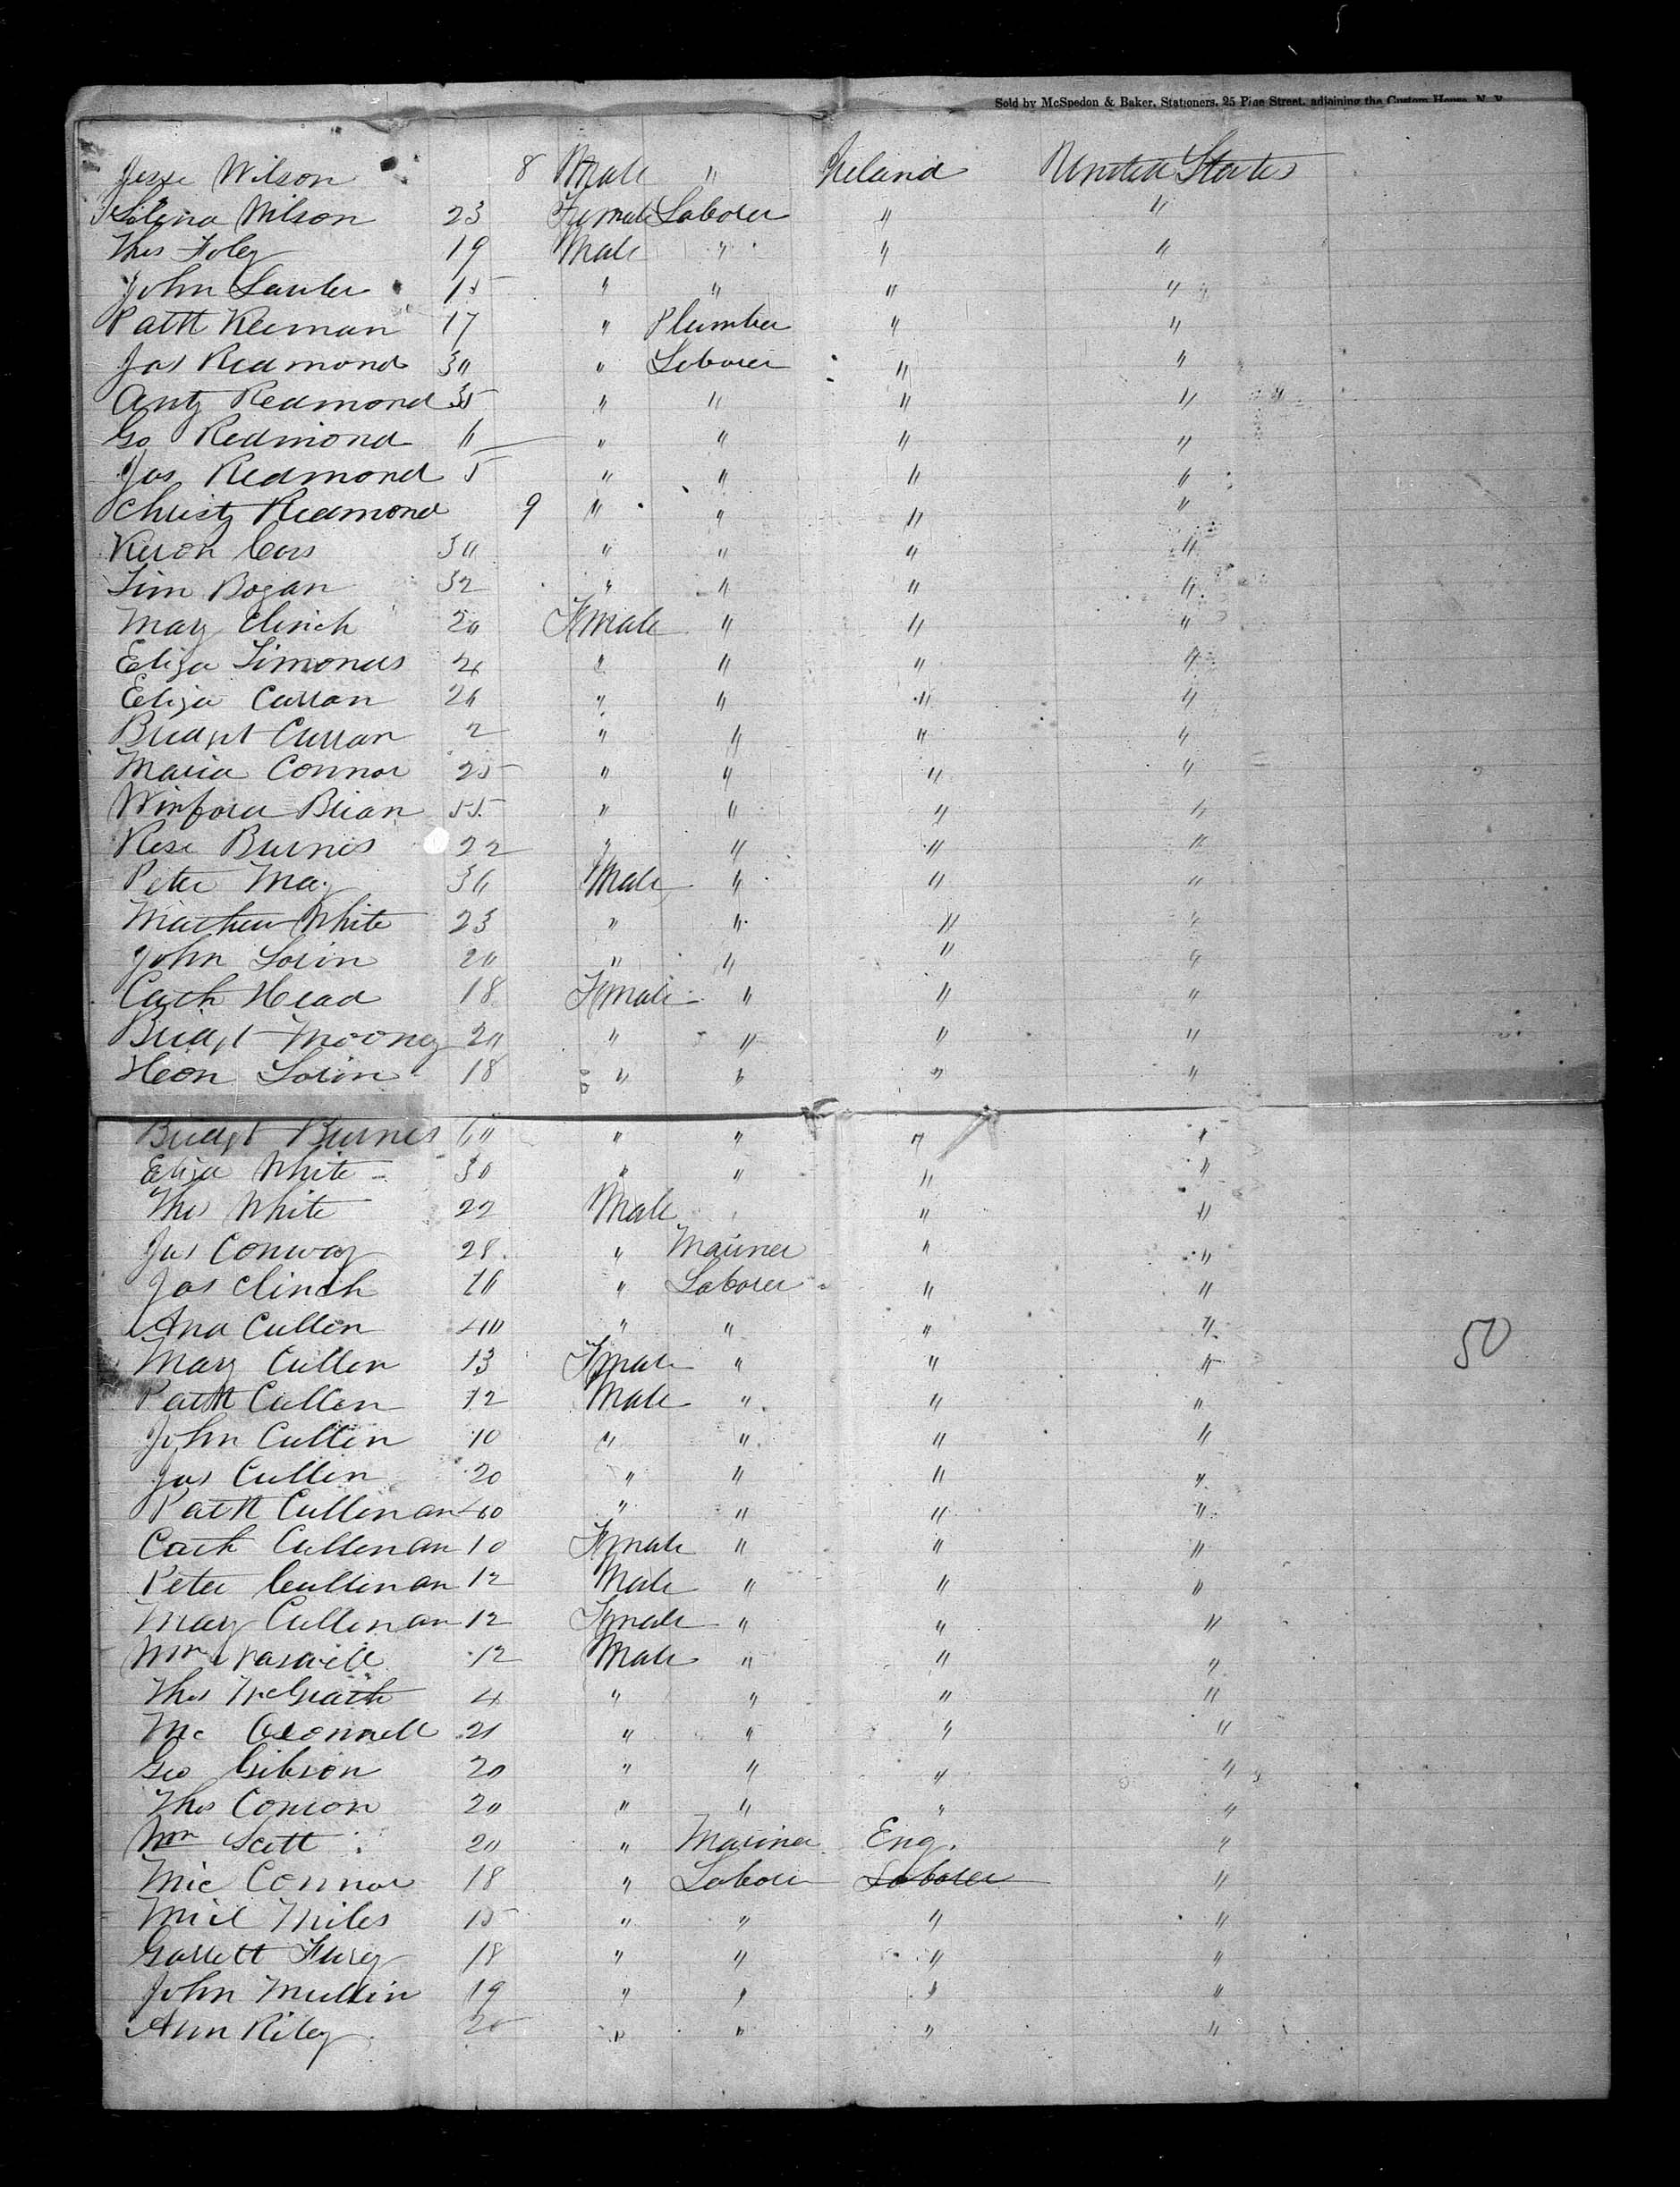 Sold by McSpedon & Baker, Stationers, 25 Pine Street, adjoining the Custom House, N. Y.
Jesse Wilson 8 Male " Ireland United States
Selena Wilson 23 Female Laborer " "
Thos Foley 19 Male " " "
John Lawler 15 " " " "
Patk Keernan 17 " Plumber " "
Jas Redmond 30 " Laborer " "
Anty Redmond 35 " " " "
Go Redmond 11 " " " "
Jas Redmond 5 " " " "
Christy Redmond 9 " " " "
Keron Cars 30 " " " "
Tim Bogan 32 " " " "
Mary Clinch 20 Female " " "
Eliza Simonds 24 " " " "
Eliza Curran 26 " " " "
Bridget Curran 2 " " " "
Maria Connor 25 " " " "
Winford Brian 55 " " " "
Rose Burnes 22 " " " "
Peter May 30 Male " " "
Mathew White 23 " " " "
John Lorin 20 " " " "
Cath Head 18 Female " " "
Bridgt Mooney 20 " " " "
Heon Lorin 18 " " " "
Bridgt Burnes 60 " " " "
Eliza White 30 " " " "
Thos White 22 Male " "
Jas Conway 28 " Mariner " "
Jas Clinch 10 " Laborer " "
Ana Cullen 40 " " " "
Mary Cullen 13 Female " " " 50
Patk Cullen 12 Male " " "
John Cullen 10 " " " "
Jas Cullen 20 " " " "
Patk Cullenan 40 " " " "
Cath Cullenan 10 Female " " "
Peter Cullinan 12 Male " " "
Mary Cullenan 12 Female " " "
Wm 12 Male " " "
Thos McGrath 4 " " " "
Mc Oconnell 21 " " " "
Geo Gibson 20 " " " "
Thos Conron 20 " " " "
Wm Scott 20 " Mariner Eng. "
Mic Connor 18 " Labore Laborer "
Micl Miles 15 " " " "
Garrett Furey 18 " " " "
John Mullin 19 " " " "
Ann Riley 20 " " " "